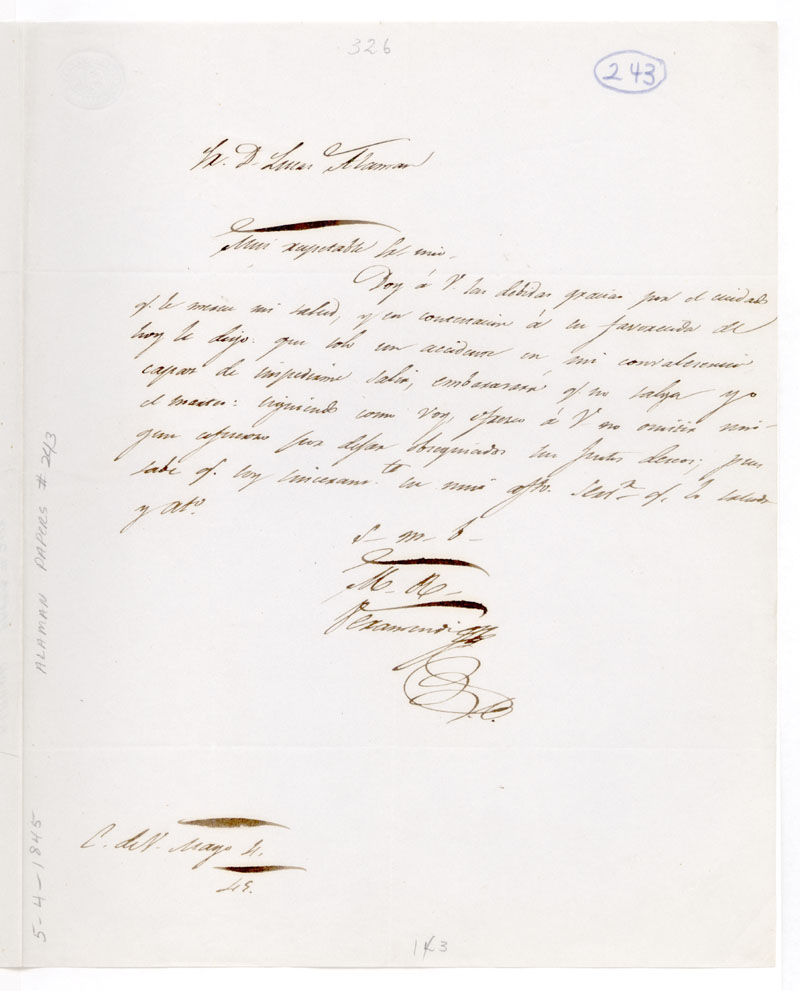 326
243
Sr. D. Lucas Alaman
Mui respetable Sr. mio.
Doy á V. las debidas gracias por el cuidado
q. le merece mi salud, y en contextacion á su favorecida de
hoy le digo: que solo un accidente en mi convalescencia
capaz de impedirme salir, embarasará q. no salga yo
el martes: siguiendo como voy, ofresco á V. no omitir nin-
gun esfuerzo por dejar obsequiados sus justos deseos; pues
sabe q. soy sinceram.te su muy afto. Serv.r q. lo saluda
y ato.
s- m- b-
M- R-
Veramendi
C. de V. Mayo 4.
45.
ALAMAN PAPERS # 243
5-4-1845